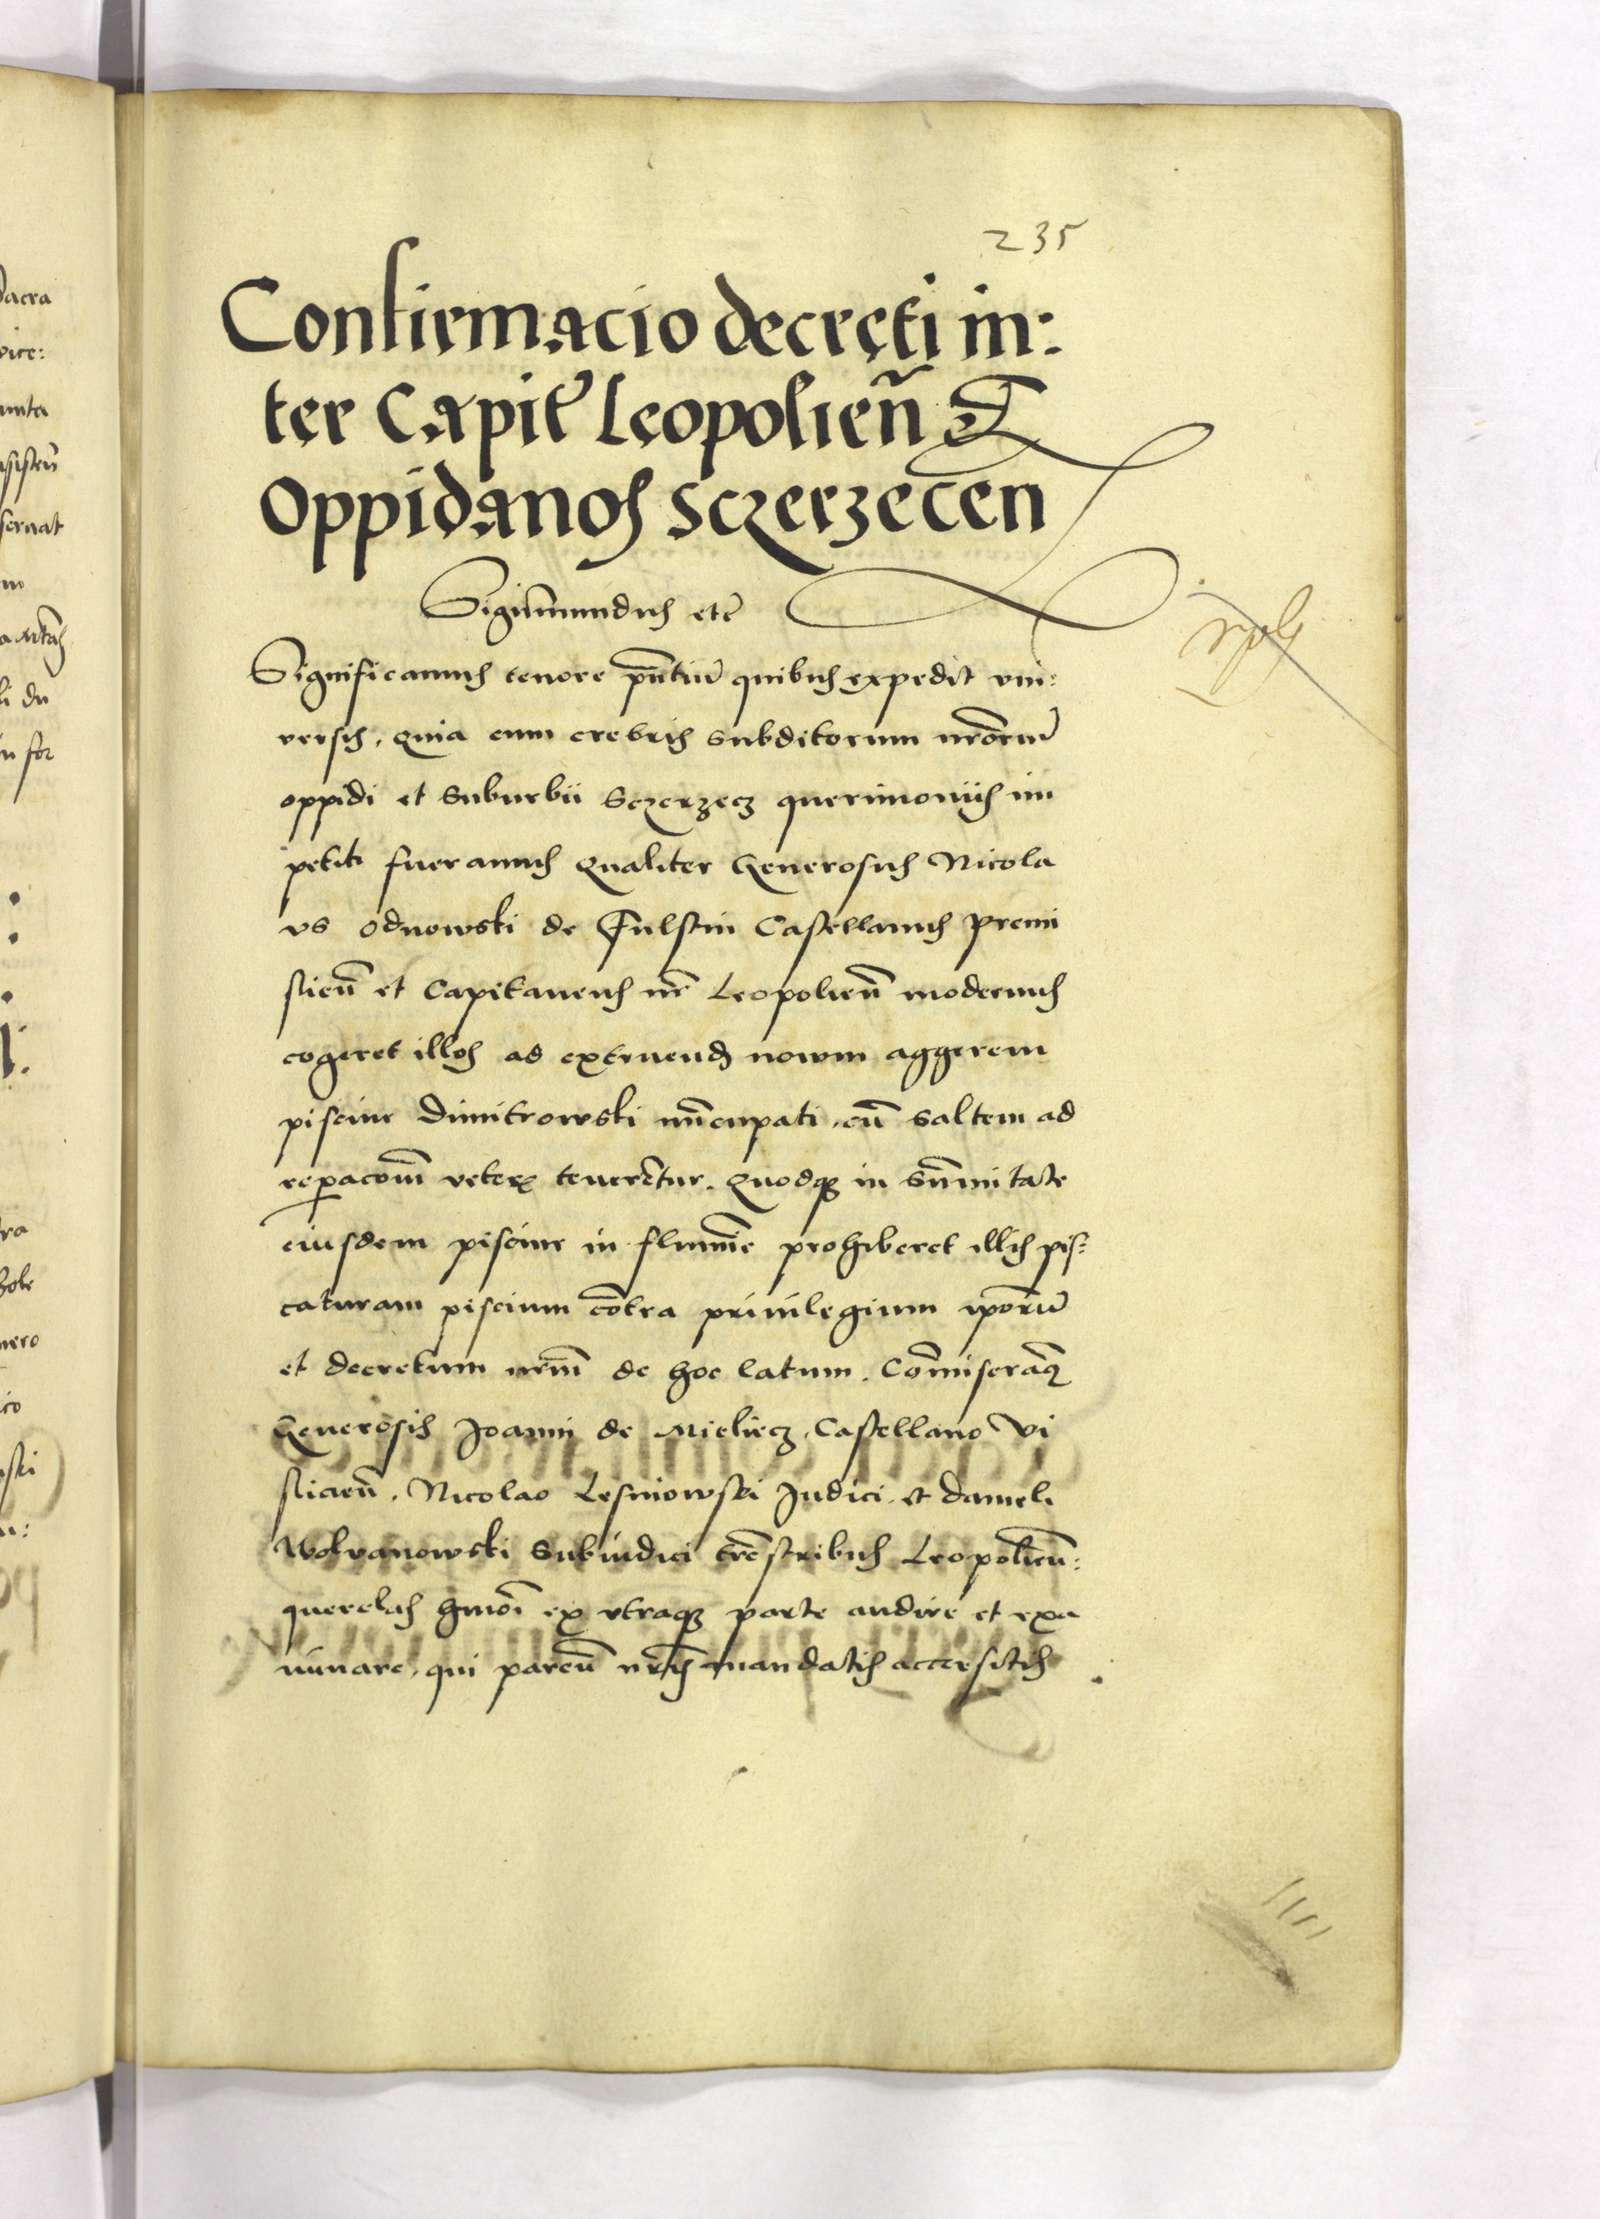 235
Confirmacio decreti in:
ter Capit Leopolien̄ &
Oppidanos Sczerzecen
Sigismundus etc̄
Significamus tenore pn̄tiū quibus expedit vni:
versis, Quia cum crebris subditorum nr̄orum
oppidi et Suburbii Sczerzecz querimoniis im
petiti fueramus Qualiter Generosus Nicola
us Odnowski de Fulstin Castellanus Premi
slien̄ et Capitaneus nr̄ Leopolien̄ modernus
cogeret illos ad extruend nowm aggerem
piscine Dimitrowski nūcupati, cū saltem ad
rep̱acōm veter tenerētur. Quodq̃ in sūmitate
eiusdem piscine in flumīe prohiberet illis pis:
caturam piscium cōtra priuilegium ip̄orū
et decretum nr̄m de hoc latum. Cōmiseramq̃
Generosis Joanni de Mieliecz, Castellano Vi
slicien̄, Nicolao Lesniowski Judici et Danieli
Wolvanowski Subiudici trēstribus Leopolien̄:
querelas hmōi ex vtraq̃ parte audire et exa
minare, qui paren̄ nr̄is mandatis accersitis